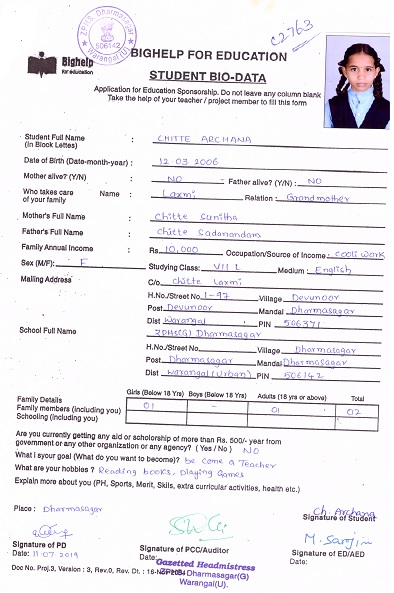 Z.P.H.S. Dharmasagar
506142
Warangal(U)
C2-763
Bighelp
for education
BIGHELP FOR EDUCATION
STUDENT BIO-DATA
Application for Education Sponsorship. Do not leave any column blank
Take the help of your teacher / project member to fill this form
Student Full Name (In Block Letters) : CHITTE ARCHANA
Date of Birth (Date-month-year) : 12-03 2006
Mother alive? (Y/N) : NO - Father alive? (Y/N) : NO
Who takes care of your family Name : Laxmi Relation : Grandmother
Mother's Full Name : Chitte Sunitha
Father's Full Name : Chitte Sadanandam
Family Annual Income : Rs. 10,000 Occupation/Source of Income : cooli work
Sex (M/F): F Studying Class: VIII Medium : English
Mailing Address C/o chitte Laxmi
H.No./Street No. 1-97 Village Devunoor
Post Devunoor Mandal Dharmasagar
Dist Warangal PIN 506371
School Full Name : ZPHS(G) Dharmasagar
H.No./Street No Village Dharmasagar
Post Dharmasagar Mandal Dharmasagar
Dist Warangal (Urban) PIN 506142
Girls (Below 18 Yrs) Boys (Below 18 Yrs) Adults (18 yrs or above) Total
Family Details
Family members (including you) 01 - 01 02
Schooling (including you)
Are you currently getting any aid or scholarship of more than Rs. 500/- year from
government or any other organization or any agency? ( Yes / No ) NO
What i sycur goal (What do you want to become)? be come a Teacher
What are your hobbies ? Reading books, playing Games
Explain more about you (PH, Sports, Merit, Skils, extra curricular activities, health etc.)
Place : Dharmasagar
Ch. Archana
Signature of Student
Signature of PD
Date: 11-07-2019
Signature of PCC/Auditor
Date:
M. Sarojin
Signature of ED/AED
Date:
Gazetted Headmistress
Doc No. Proj.3, Version : 3, Rev.0, Rev. Dt. : 16-
Dharmasagar(G)
Warangal(U).